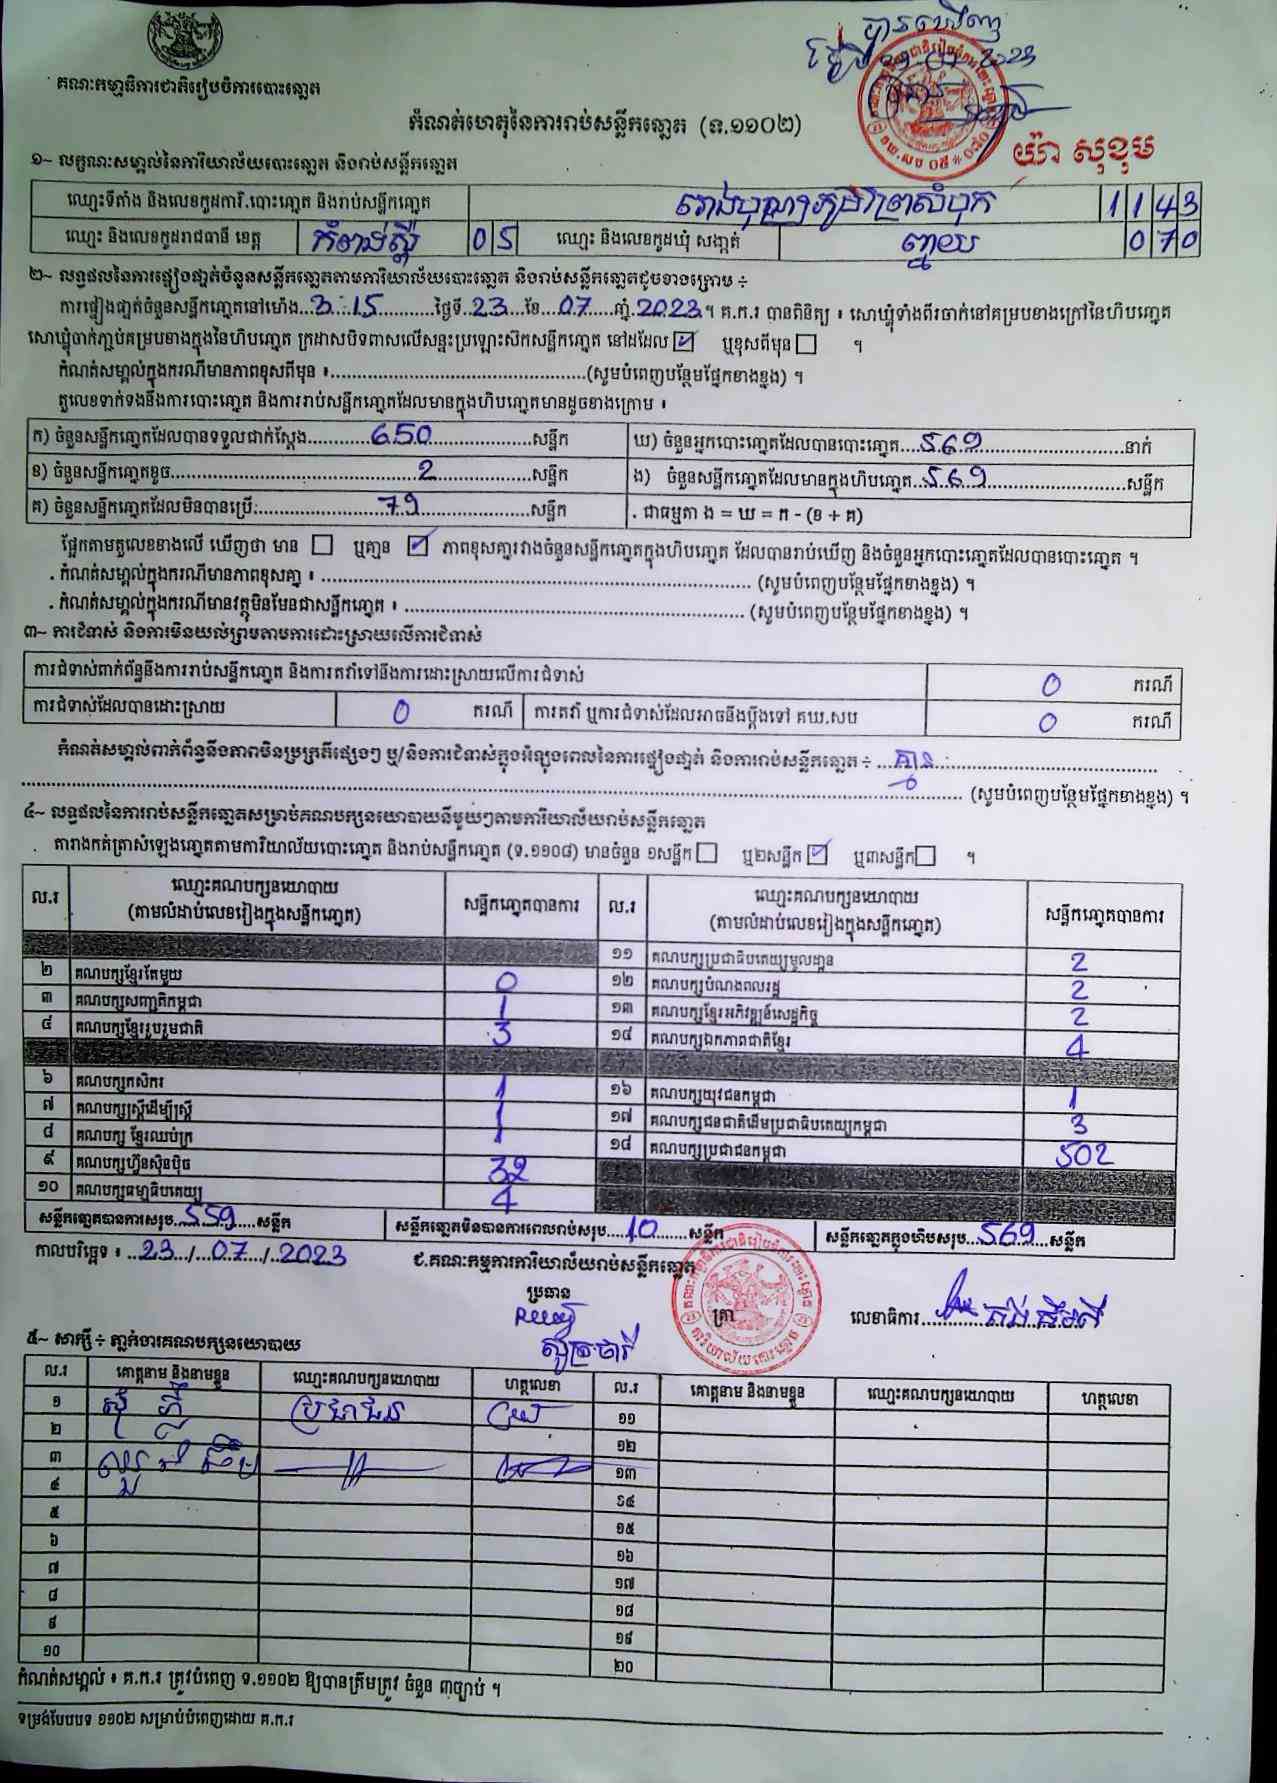 គណៈកម្មាធិការជាតិរៀបចំការបោះឆ្នោត
បានឃើញ
2023
កំណត់ហេតុនៃការរាប់សន្លឹកឆ្នោត (ទ.១១០២)
យ៉ា សុខុម
១~ លក្ខណៈសម្គាល់នៃការិយាល័យបោះឆ្នោត និងរាប់សន្លឹកឆ្នោត
ឈ្មោះទីតាំង និងលេខកូដការិ.បោះឆ្នោត និងរាប់សន្លឹកឆ្នោត 1143
ឈ្មោះ និងលេខកូដរាជធានី ខេត្ត កំពង់ស្ពឺ 05 ឈ្មោះ និងលេខកូដឃុំ សង្កាត់ 070
២~ លទ្ធផលនៃការផ្ទៀងផ្ទាត់ចំនួនសន្លឹកឆ្នោតតាមការិយាល័យបោះឆ្នោត និងរាប់សន្លឹកឆ្នោតដូចខាងក្រោម ÷
ការផ្ទៀងផ្ទាត់ចំនួនសន្លឹកឆ្នោតនៅម៉ោង...3:15...ថ្ងៃទី..23...ខែ...07...ឆ្នាំ.2023.។ គ.ក.រ បានពិនិត្យ ៖ សោឃ្លុំទាំងពីរចាក់នៅគម្របខាងក្រៅនៃហិបឆ្នោត
សោឃ្លុំចាក់ភ្ជាប់គម្របខាងក្នុងនៃហិបឆ្នោត ក្រដាសបិទពាសលើសន្ទះប្រឡោះស៊កសន្លឹកឆ្នោត នៅដដែល ☑ ឬខុសពីមុន ☐ ។
កំណត់សម្គាល់ក្នុងករណីមានភាពខុសពីមុន ៖..........(សូមបំពេញបន្ថែមផ្នែកខាងខ្នង) ។
តួលេខទាក់ទងនឹងការបោះឆ្នោត និងការរាប់សន្លឹកឆ្នោតដែលមានក្នុងហិបឆ្នោតមានដូចខាងក្រោម ៖
ក) ចំនួនសន្លឹកឆ្នោតដែលបានទទួលជាក់ស្តែង...650...សន្លឹក ឃ) ចំនួនអ្នកបោះឆ្នោតដែលបានបោះឆ្នោត...569...នាក់
ខ) ចំនួនសន្លឹកឆ្នោតខូច...2...សន្លឹក ង) ចំនួនសន្លឹកឆ្នោតដែលមានក្នុងហិបឆ្នោត..569...សន្លឹក
គ) ចំនួនសន្លឹកឆ្នោតដែលមិនបានប្រើ:...79...សន្លឹក . ជាធម្មតា ង = ឃ = ក - (ខ + គ)
ផ្អែកតាមតួលេខខាងលើ ឃើញថា មាន ☐ ឬគ្មាន ☑ ភាពខុសគ្នារវាងចំនួនសន្លឹកឆ្នោតក្នុងហិបឆ្នោត ដែលបានរាប់ឃើញ និងចំនួនអ្នកបោះឆ្នោតដែលបានបោះឆ្នោត ។
. កំណត់សម្គាល់ក្នុងករណីមានភាពខុសគ្នា ៖ .......... (សូមបំពេញបន្ថែមផ្នែកខាងខ្នង) ។
. កំណត់សម្គាល់ក្នុងករណីមានវត្ថុមិនមែនជាសន្លឹកឆ្នោត ៖ .......... (សូមបំពេញបន្ថែមផ្នែកខាងខ្នង) ។
៣~ ការជំទាស់ និងការមិនយល់ព្រមតាមការដោះស្រាយលើការជំទាស់
ការជំទាស់ពាក់ព័ន្ធនឹងការរាប់សន្លឹកឆ្នោត និងការតវ៉ាទៅនឹងការដោះស្រាយលើការជំទាស់ 0 ករណី
ការជំទាស់ដែលបានដោះស្រាយ 0 ករណី ការតវ៉ា ឬការជំទាស់ដែលអាចនឹងប្តឹងទៅ គឃ.សប 0 ករណី
កំណត់សម្គាល់ពាក់ព័ន្ធនឹងភាពមិនប្រក្រតីផ្សេងៗ ឬ/និងការជំទាស់ក្នុងអំឡុងពេលនៃការផ្ទៀងផ្ទាត់ និងការរាប់សន្លឹកឆ្នោត ÷ ...គ្មាន...
.......... (សូមបំពេញបន្ថែមផ្នែកខាងខ្នង) ។
៤~ លទ្ធផលនៃការរាប់សន្លឹកឆ្នោតសម្រាប់គណបក្សនយោបាយនីមួយៗតាមការិយាល័យរាប់សន្លឹកឆ្នោត
តារាងកត់ត្រាសំឡេងឆ្នោតតាមការិយាល័យបោះឆ្នោត និងរាប់សន្លឹកឆ្នោត (ទ.១១០៨) មានចំនួន ១សន្លឹក ☐ ឬ២សន្លឹក ☑ ឬ៣សន្លឹក ☐ ។
ល.រ ឈ្មោះគណបក្សនយោបាយ (តាមលំដាប់លេខរៀងក្នុងសន្លឹកឆ្នោត) សន្លឹកឆ្នោតបានការ ល.រ ឈ្មោះគណបក្សនយោបាយ (តាមលំដាប់លេខរៀងក្នុងសន្លឹកឆ្នោត) សន្លឹកឆ្នោតបានការ
១១ គណបក្សប្រជាធិបតេយ្យមូលដ្ឋាន 2
២ គណបក្សខ្មែរតែមួយ 0 ១២ គណបក្សបំណងពលរដ្ឋ 2
៣ គណបក្សសញ្ជាតិកម្ពុជា 1 ១៣ គណបក្សខ្មែរអភិវឌ្ឍន៍សេដ្ឋកិច្ច 2
៤ គណបក្សខ្មែររួបរួមជាតិ 3 ១៤ គណបក្សឯកភាពជាតិខ្មែរ 4
៦ គណបក្សកសិករ 1 ១៦ គណបក្សយុវជនកម្ពុជា 1
៧ គណបក្សស្ត្រីដើម្បីស្ត្រី 1 ១៧ គណបក្សជនជាតិដើមប្រជាធិបតេយ្យកម្ពុជា 3
៨ គណបក្ស ខ្មែរឈប់ក្រ 1 ១៨ គណបក្សប្រជាជនកម្ពុជា 502
៩ គណបក្សហ៊្វុនស៊ិនប៉ិច 32
១០ គណបក្សធម្មាធិបតេយ្យ 4
សន្លឹកឆ្នោតបានការសរុប...559...សន្លឹក សន្លឹកឆ្នោតមិនបានការពេលរាប់សរុប...10...សន្លឹក សន្លឹកឆ្នោតក្នុងហិបសរុប...569...សន្លឹក
កាលបរិច្ឆេទ ៖ ..23../..07../..2023 ជ.គណៈកម្មការការិយាល័យរាប់សន្លឹកឆ្នោត
ប្រធាន ត្រា លេខាធិការ..........
៥~ សាក្សី ÷ ភ្នាក់ងារគណបក្សនយោបាយ
ល.រ គោត្តនាម និងនាមខ្លួន ឈ្មោះគណបក្សនយោបាយ ហត្ថលេខា ល.រ គោត្តនាម និងនាមខ្លួន ឈ្មោះគណបក្សនយោបាយ ហត្ថលេខា
១ ប្រជាជន ១១
២ ១២
៣ ១៣
៤ ១៤
៥ ១៥
៦ ១៦
៧ ១៧
៨ ១៨
៩ ១៩
១០ ២០
កំណត់សម្គាល់ ៖ គ.ក.រ ត្រូវបំពេញ ទ.១១០២ ឱ្យបានត្រឹមត្រូវ ចំនួន ៣ច្បាប់ ។
ទម្រង់បែបបទ ១១០២ សម្រាប់បំពេញដោយ គ.ក.រ